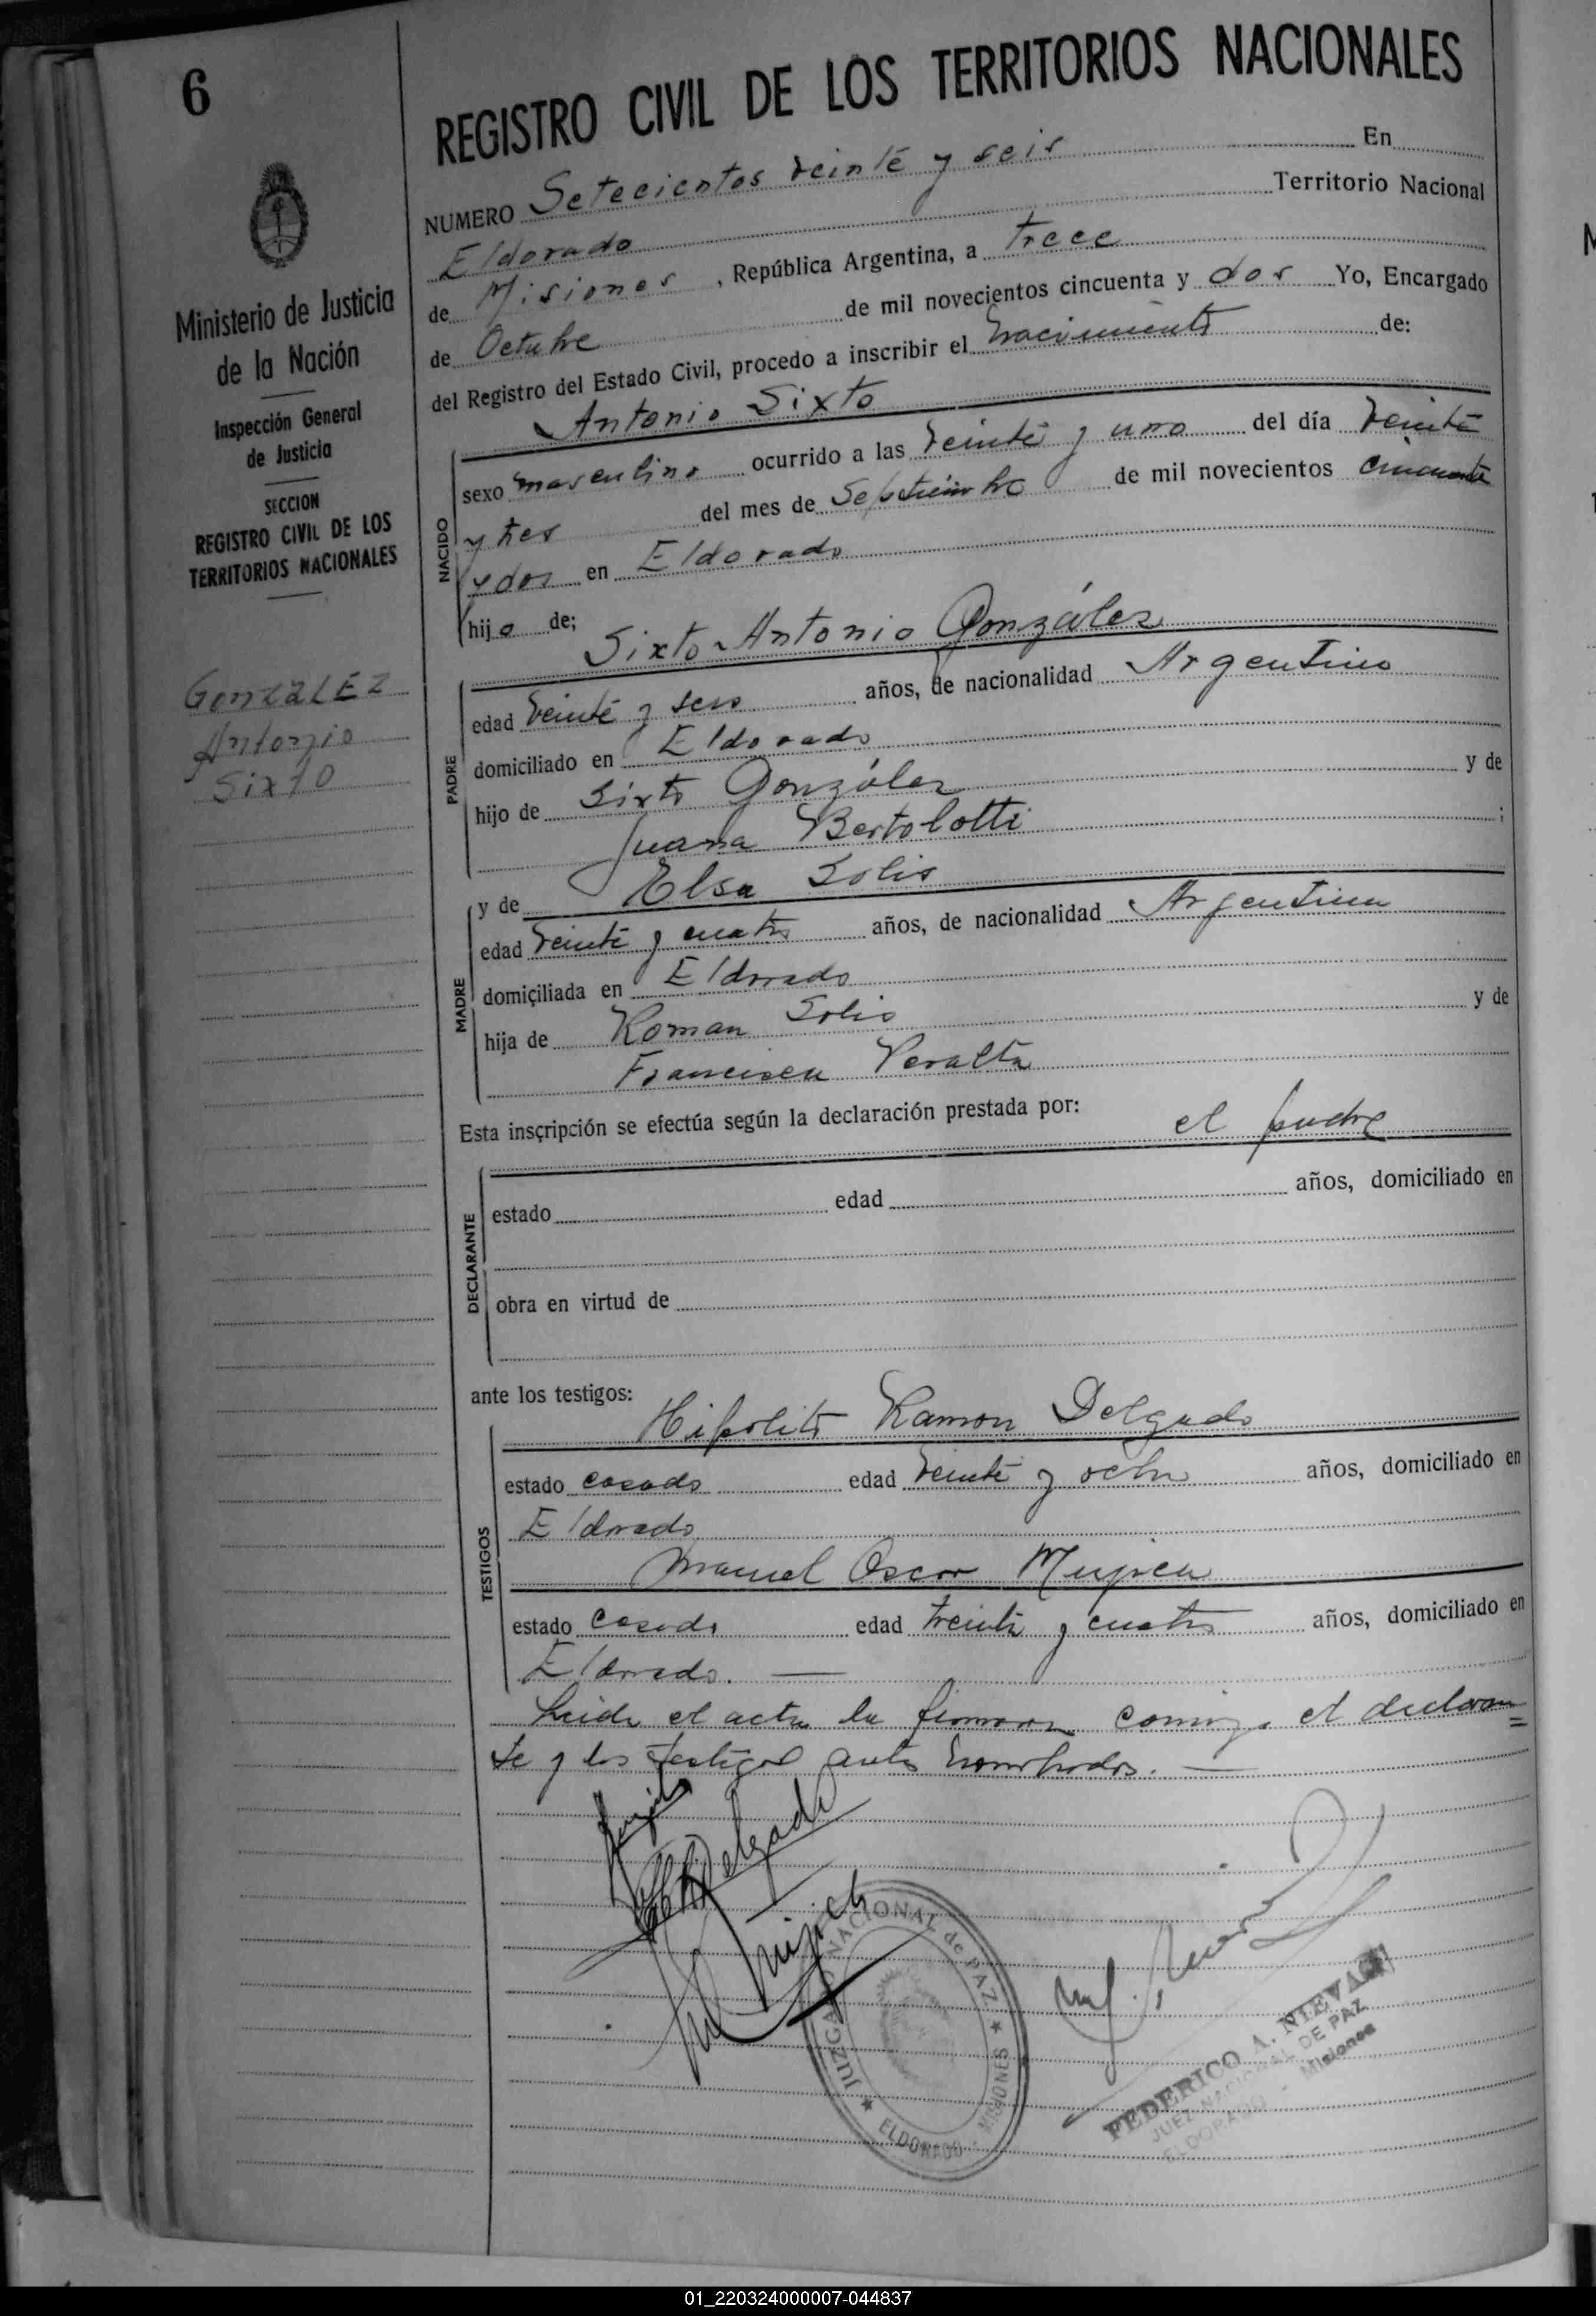 6
Ministerio de Justicia
de la Nación
Inspección General
de Justicia
SECCION
REGISTRO CIVIL DE LOS
TERRITORIOS NACIONALES
GonzALEZ
Antonio
Sixto
REGISTRO CIVIL DE LOS TERRITORIOS NACIONALES
NUMERO Setecientos veinte y seis En
Eldorado Territorio Nacional
de Misiones, República Argentina, a trece
de Octubre de mil novecientos cincuenta y dos Yo, Encargado
del Registro del Estado Civil, procedo a inscribir el nacimiento de:
Antonio Sixto
NACIDO
sexo masculino ocurrido a las veinte y una del día veinte
y tres del mes de Septiembre de mil novecientos cincuenta
y dos en Eldorado
hijo de;
Sixto Antonio González
PADRE
edad veinte y seis años, de nacionalidad Argentino
domiciliado en Eldorado
hijo de Sixto González y de
Juana Bertolotti ;
y de Elsa Solis
MADRE
edad veinte y cuatro años, de nacionalidad Argentina
domiciliada en Eldorado
hija de Roman Solis y de
Francisca Peralta
Esta inscripción se efectúa según la declaración prestada por:
el padre
DECLARANTE
estado edad años, domiciliado en
obra en virtud de
ante los testigos:
Hipolito Ramon Delgado
TESTIGOS
estado casado edad veinte y ocho años, domiciliado en
Eldorado
Manuel Oscar Mujica
estado casado edad treinta y cuatro años, domiciliado en
Eldorado. —
Leida el acta la firmaron conmigo el declaran=
te y los testigos antes nombrados. —
Delgado
Mujica
JUZGADO NACIONAL de PAZ ★ MISIONES - ELDORADO ★
FEDERICO A. NIEVAS
JUEZ NACIONAL DE PAZ
ELDORADO - Misiones
01_220324000007-044837